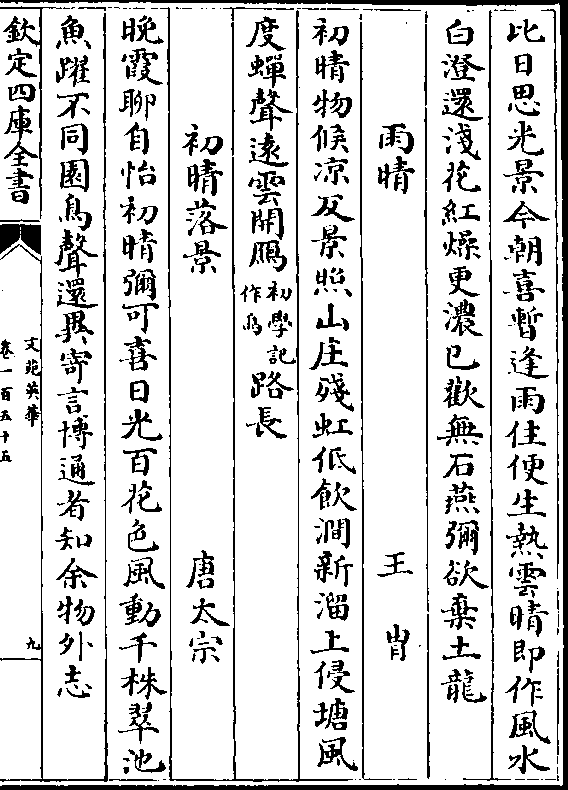 比日思光景今朝喜暫逢雨住便生熱雲晴即作風水
白澄還淺花紅燥更濃已歡無石燕彌欲棄土龍
雨晴 王胄
初晴物候凉反景照山庄殘虹低飲澗新溜上侵塘風
度蟬聲逺雲開鴈初學記作鳥路長
初晴落景 唐太宗
晩霞聊自怡初晴彌可喜日光百花色風動千株翠池
魚躍不同園鳥聲還異寄言博通者知余物外志
欽定四庫全書
文苑英華
卷一百五十五
九